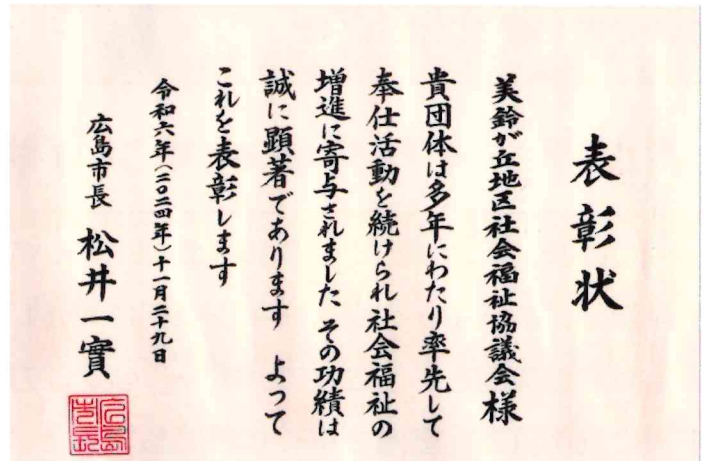 表彰状
美鈴が丘地区社会福祉協議会様
貴団体は多年にわたり率先して
奉仕活動を続けられ社会福祉の
増進に寄与されました その功績は
誠に顕著であります よって
これを表彰します
令和六年(二〇二四年)十一月二十九日
広島市長 松井一實
広島市長